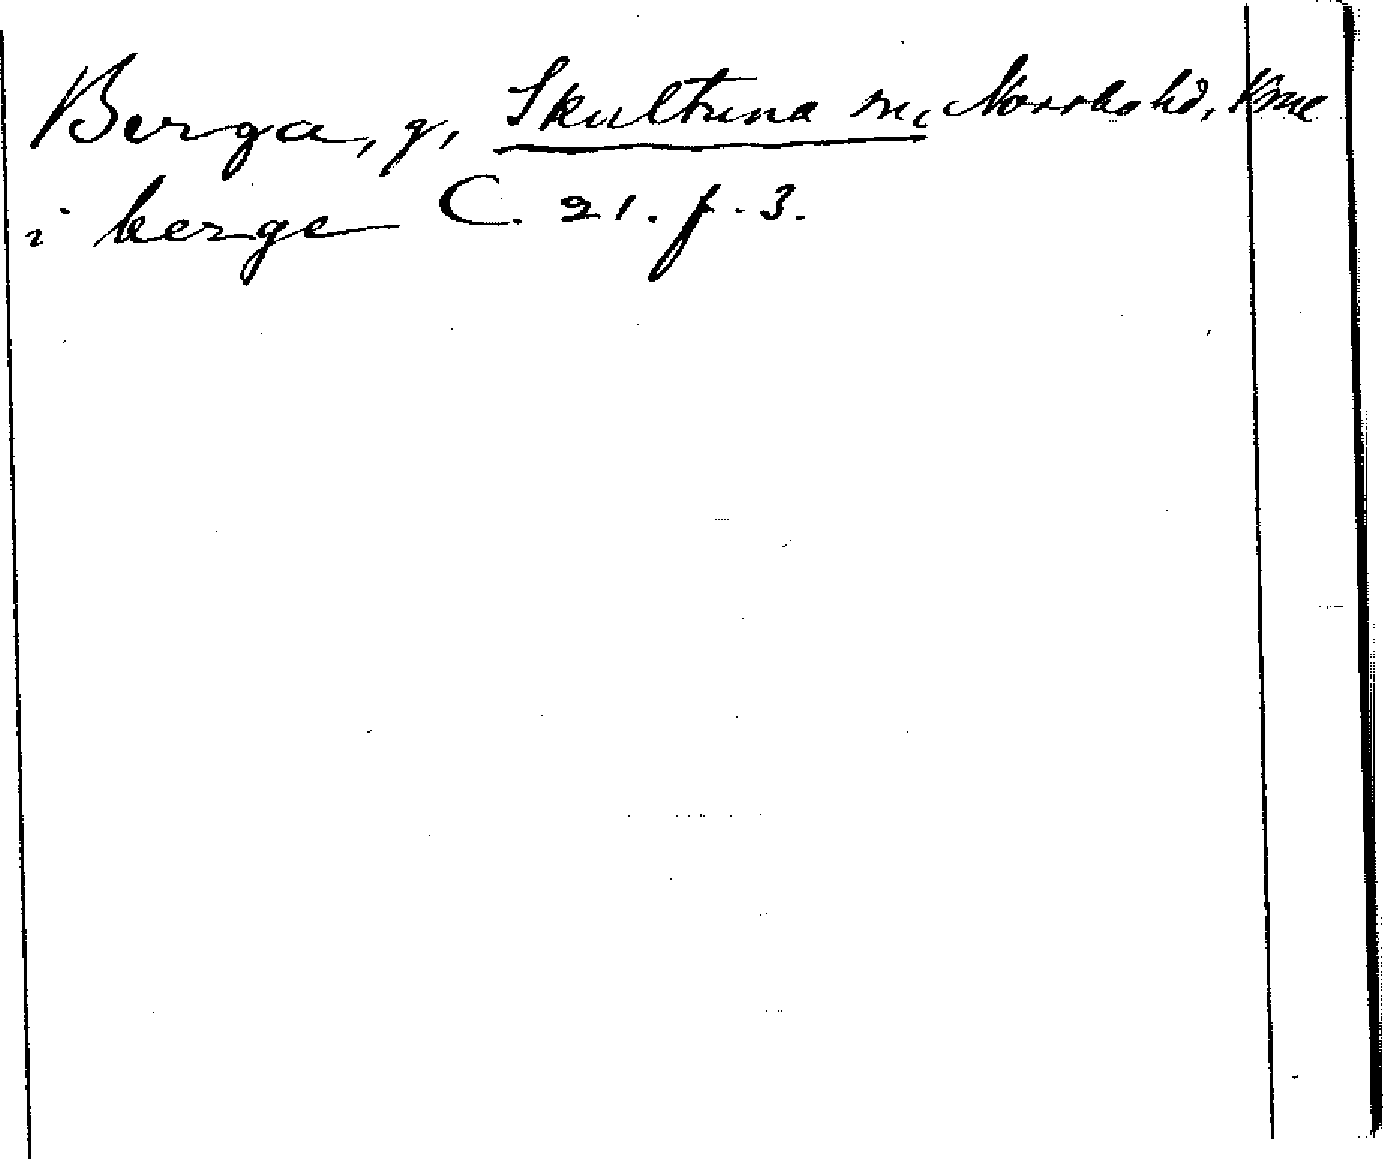 Berga, g, Skultuna sn, Norrbo hd, Vme
i berge C. 21. f. 3.